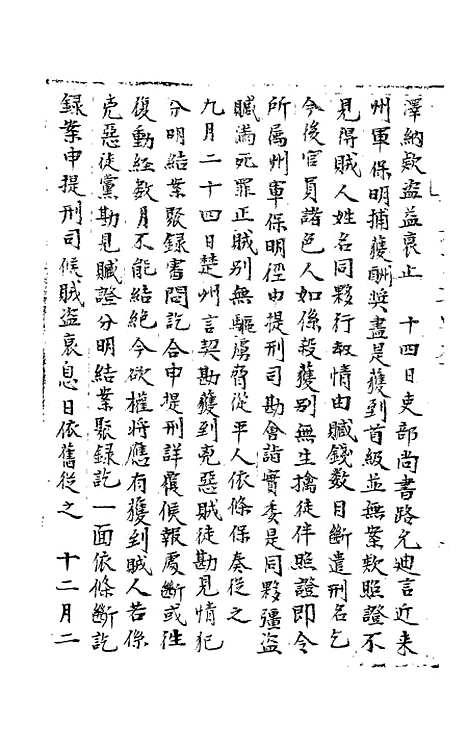 澤納欵盗益衰止　十四日吏部尚書路允迪言近来
州軍保明捕獲酬奨盡是獲到首級並無案欵照證不
見得賊人姓名同夥行刼情由贓錢数目斷遣刑名乞
今後官員諸色人如係殺獲別無生擒徒伴照證即令
所属州軍保明徑申提刑司勘會詣實委是同夥彊盗
贓滿死罪正賊別無驅虜脅從平人依條保奏從之
九月二十四日楚州言契勘獲到兇惡賊徒勘見情犯
分明結案聚録書問訖合申提刑詳覆候報處斷或往
復動經数月不能結絕今欲權將應有獲到賊人若係
兇惡徒黨勘見贓證分明結案聚録訖一面依條斷訖
録案申提刑司候賊盗衰息日依舊從之　十二月二